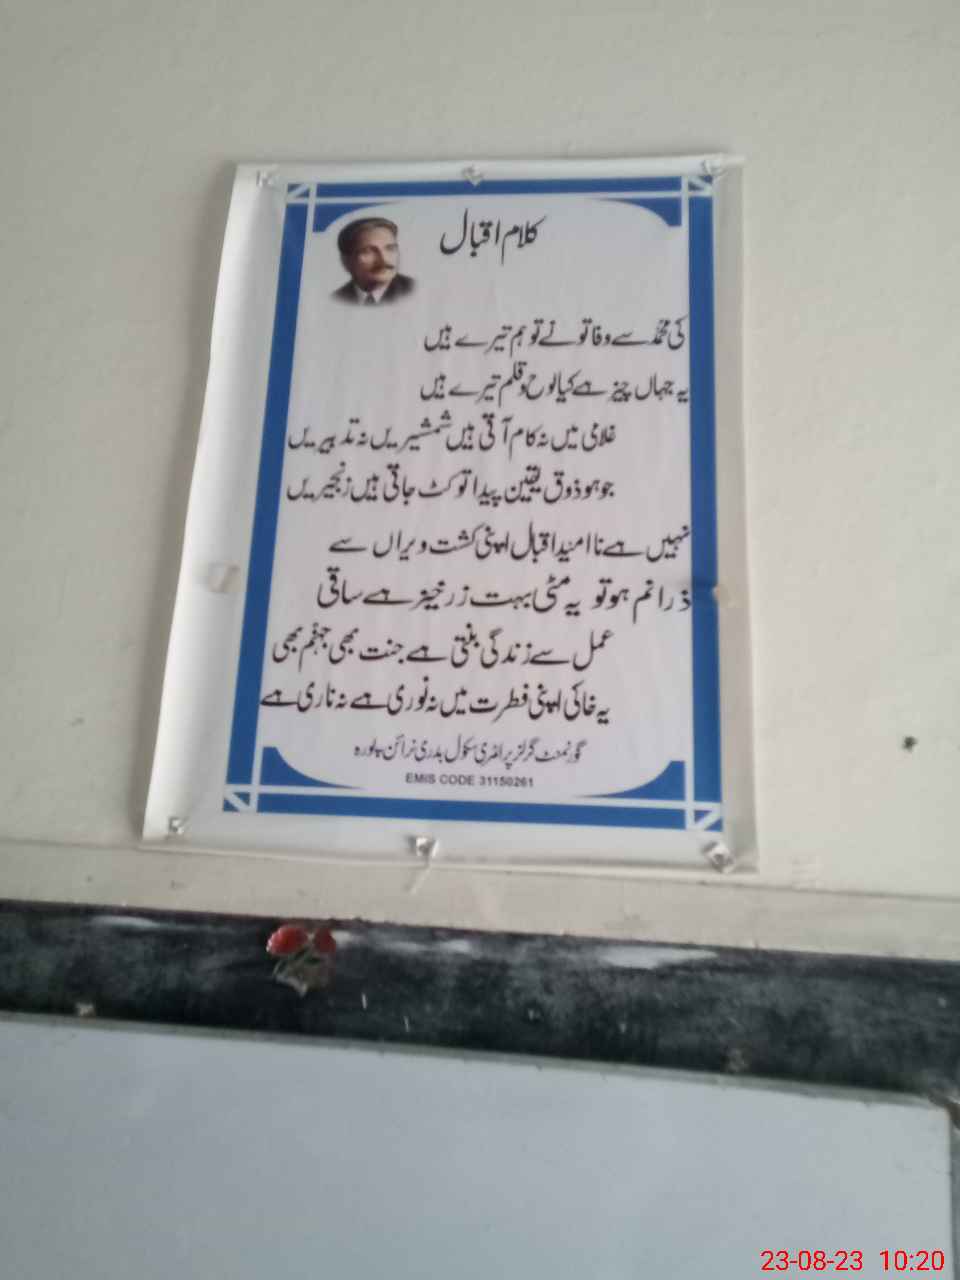 کلام اقبال
کی محمدؐ سے وفا تو نے تو ہم تیرے ہیں
یہ جہاں چیز ہے کیا لوح و قلم تیرے ہیں
غلامی میں نہ کام آتی ہیں شمشیریں نہ تدبیریں
جو ہو ذوق یقین پیدا تو کٹ جاتی ہیں زنجیریں
نہیں ہے نا امید اقبال اپنی کشت ویراں سے
ذرا نم ہو تو یہ مٹی بہت زرخیز ہے ساقی
عمل سے زندگی بنتی ہے جنت بھی جہنم بھی
یہ خاکی اپنی فطرت میں نہ نوری ہے نہ ناری ہے
گورنمنٹ گرلز پرائمری سکول بدری نرائن
EMIS CODE 31150261
23-08-23 10:20